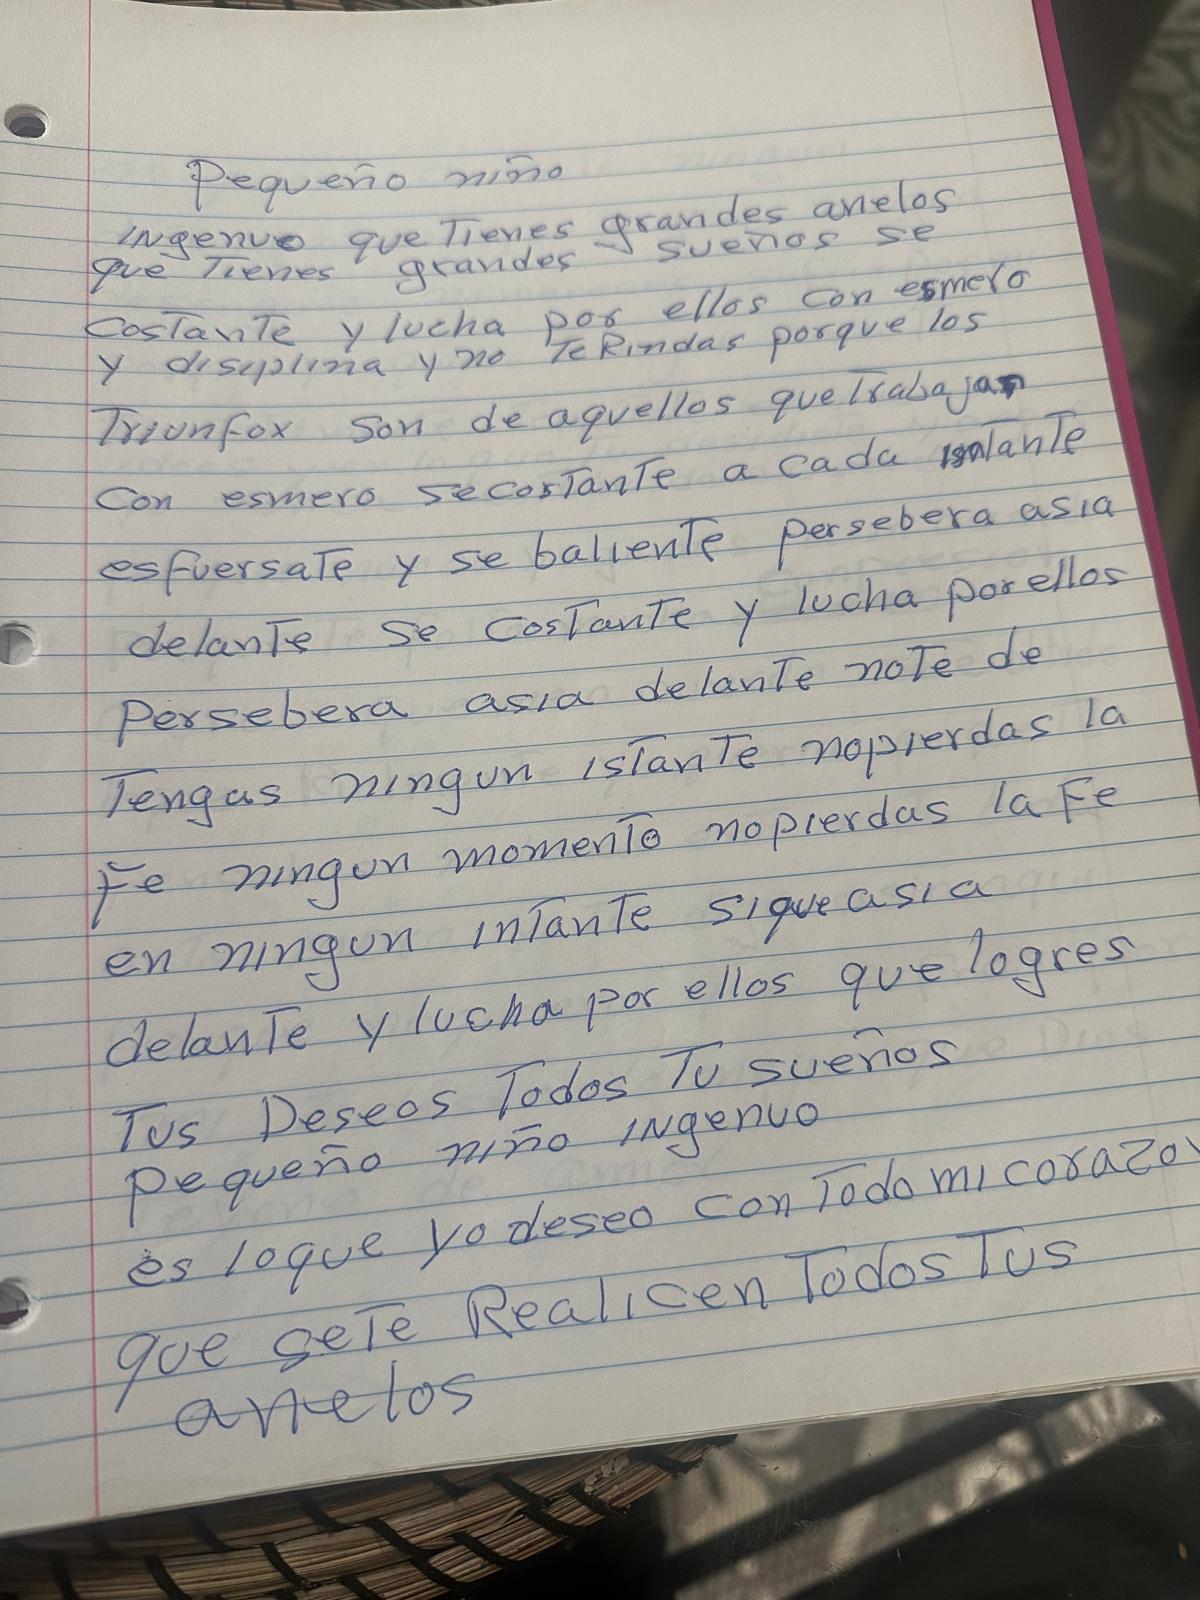 Pequeño niño
INgenuo que Tienes grandes anelos
que Tienes grandes sueños se
CosTanTe y lucha por ellos con esmero
y disiplina y no Te Rindas porque los
Triunfox son de aquellos que Trabajan
con esmero se cosTanTe a cada insTanTe
esfuersaTe y se balienTe persebera asia
delanTe se cosTanTe y lucha por ellos
persebera asia delanTe noTe de
Tengas ningun isTanTe nopierdas la
Fe ningun momenTo nopierdas la Fe
en ningun inTanTe sique asia
delanTe y lucha por ellos que logres
Tus Deseos Todos Tu sueños
pequeño niño INgenuo
es loque yo deseo con Todo mi corazon
que seTe Realicen Todos Tus
anelos